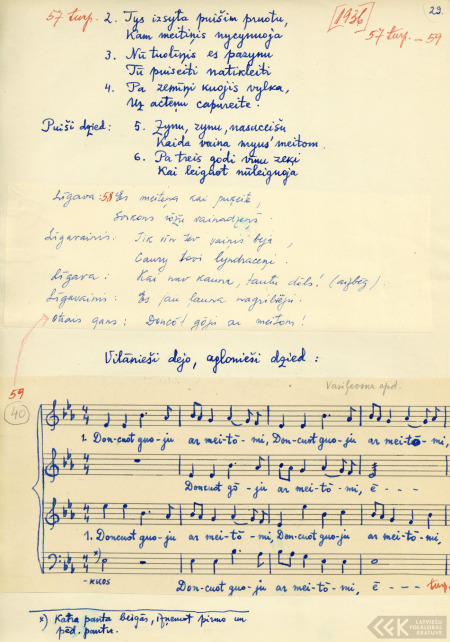 57 turp. 2. Tys izsyta puišim pruotu,
[1936]
29.
Kam meitiņis nycymuoja
57 turp. - 59
3. Nū tuoliņis es pazynu
Tū puiseiti natikleiti
4. Pa zemiņi kuojis vylka,
Uz acteņu capureite.
Puiši dzied: 5. Zynu, zynu, nasacceišu
Kaida vaina myus' meitom.
6. Pa treis godi vīnu zeķi
Kai leigaot nūleiguoja
Līgava: 58 Es meitiņa kai puķeite,
Sorkons rōžu vainadziņš.
Līgavainis: Tik
Līgava: Kai nav kauna, tautu dēls! (aizbēg).
Līgavainis: Es jau ļauna nagribēju.
Otrais gans: Doncōt gōju ar meitom!
Vilānieši dejo, aglonieši dzied:
59
40
Vasiļjevna apd.
1. Don-cuot guo-ju ar mei-tō-mi, Don-cuot guo-ju ar mei-tō-mi,
Doncuot gō-ju ar mei-tō-mi, ē - - - -
1. Doncuot guo-ju ar mei-tō-mi, Don-cuot guo-ju ar mei-tō-mi,
x)
-kuos
Don-cuot guo-ju ar mei-tō-mi, ē - - - turp.
x) Katra panta beigās, izņemot pirmo un
pēd. pantu.
LFK
LATVIEŠU
FOLKLORAS
KRĀTUVE